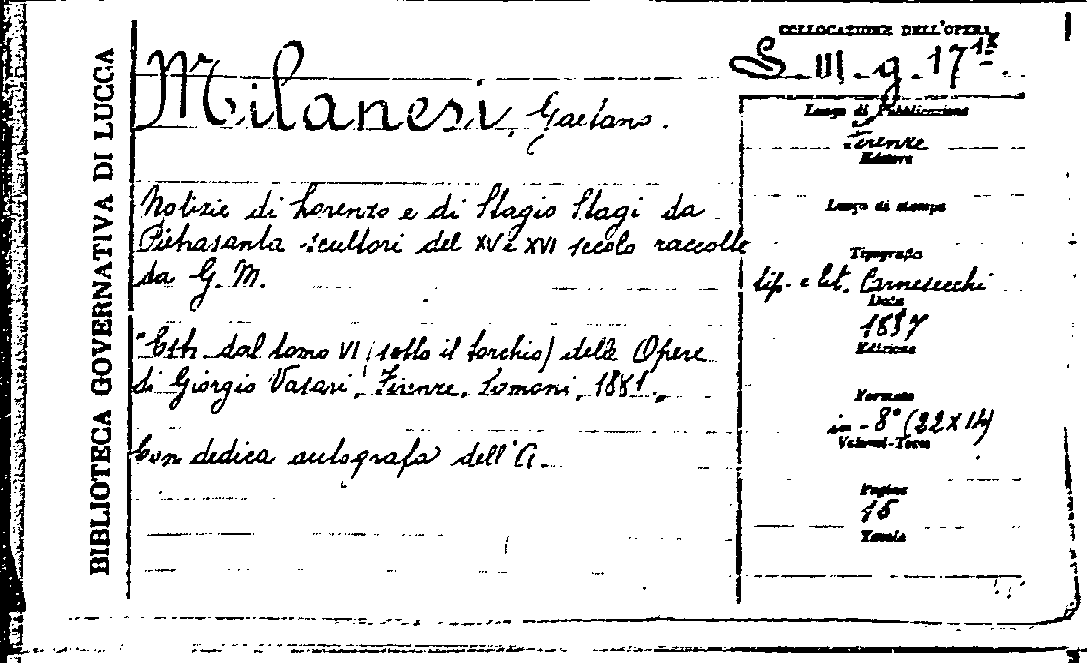 BIBLIOTECA GOVERNATIVA DI LUCCA
Milanesi, Gaetano.
Notizie di Lorenzo e di Stagio Stagi da
Pietrasanta scultori del XV e XVI secolo raccolte
da G. M.
"Estr. dal tomo VI (sotto il torchio) delle Opere
di Giorgio Vasari, Firenze, Sansoni, 1881".
Con dedica autografa dell'A.
COLLOCAZIONE DELL'OPERA
S. III. g. 17
Luogo di Pubblicazione
Firenze
Editore
Luogo di stampa
Tipografo
tip. e lit. Carnesecchi
Data
Edizione
Formato
in-8° (22x14)
Volumi-Tomi
Pagine
Tavole